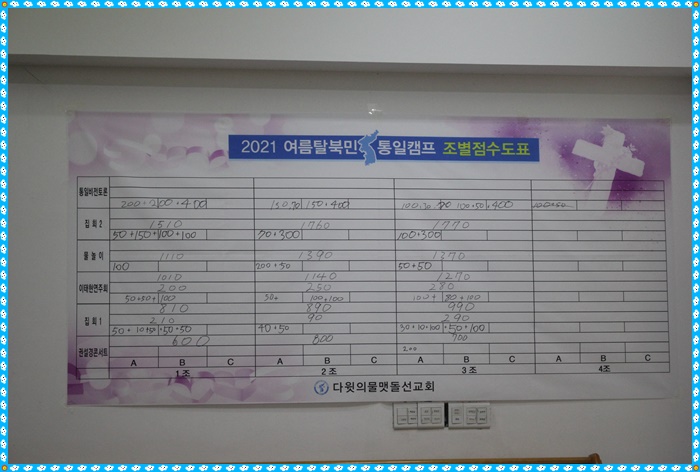 2021 여름탈북민 통일캠프 조별점수도표
통일비전토론
200+200+400 150,70 150+400 100,70 70 100+50 400 100+50
집회2 1510 1760 1770
50+150+100+100 70+300 100+300
물놀이 1110 1390 1370
100 200+50 50+50
1010 1140 1270
이태현연주회 200 250 280
50+50+ 100 30+ 100+100 100+ 80+100
810 890 990
집회1 210 90 290
50+10+50+50+50 40+50 30+10+100+50+100
전설경콘서트 600 800 700
200
A B C A B C A B C A B C
1조 2조 3조 4조
다윗의물맷돌선교회